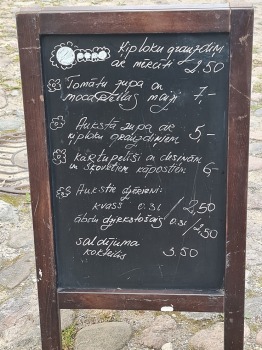 Ķiploku grauzdiņi
ar mērcīti 2,50
Tomātu zupa un
maiji 7,-
Aukstā zupa ar
ķiploku grauzdiņiem 5,-
kartupelīši un desiņām
un skovētiem kāpostiem 6,-
Aukstie dzērieni:
kvass 0.3l / 2,50
ābolu dzirkstošais 0.3l / 2,50
saldējuma
kokteilis 3.50